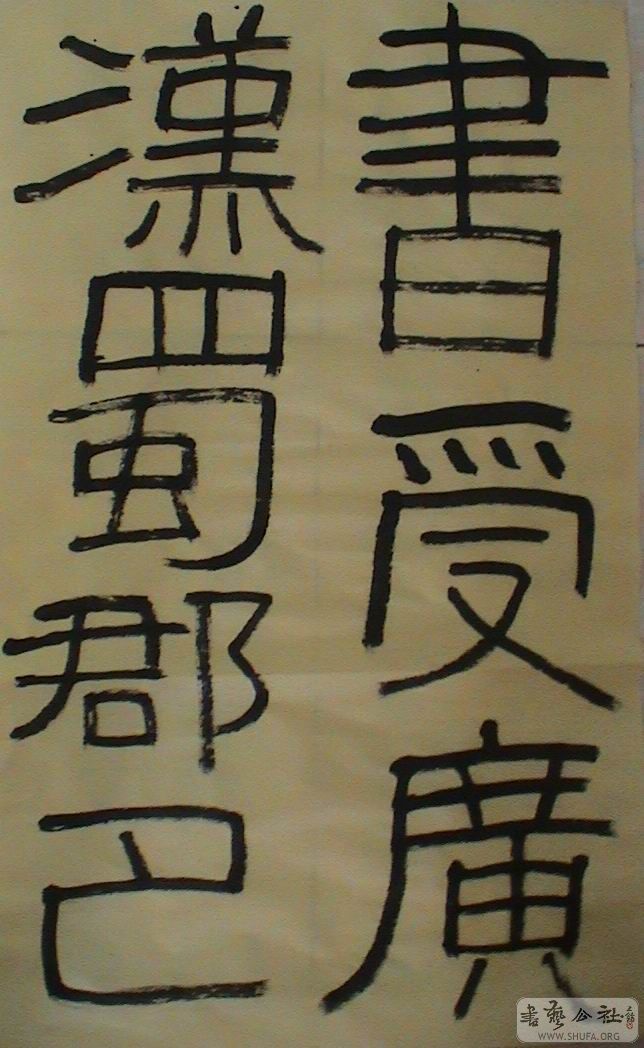 書受廣
漢蜀郡巴
書藝公社
WWW.SHUFA.ORG